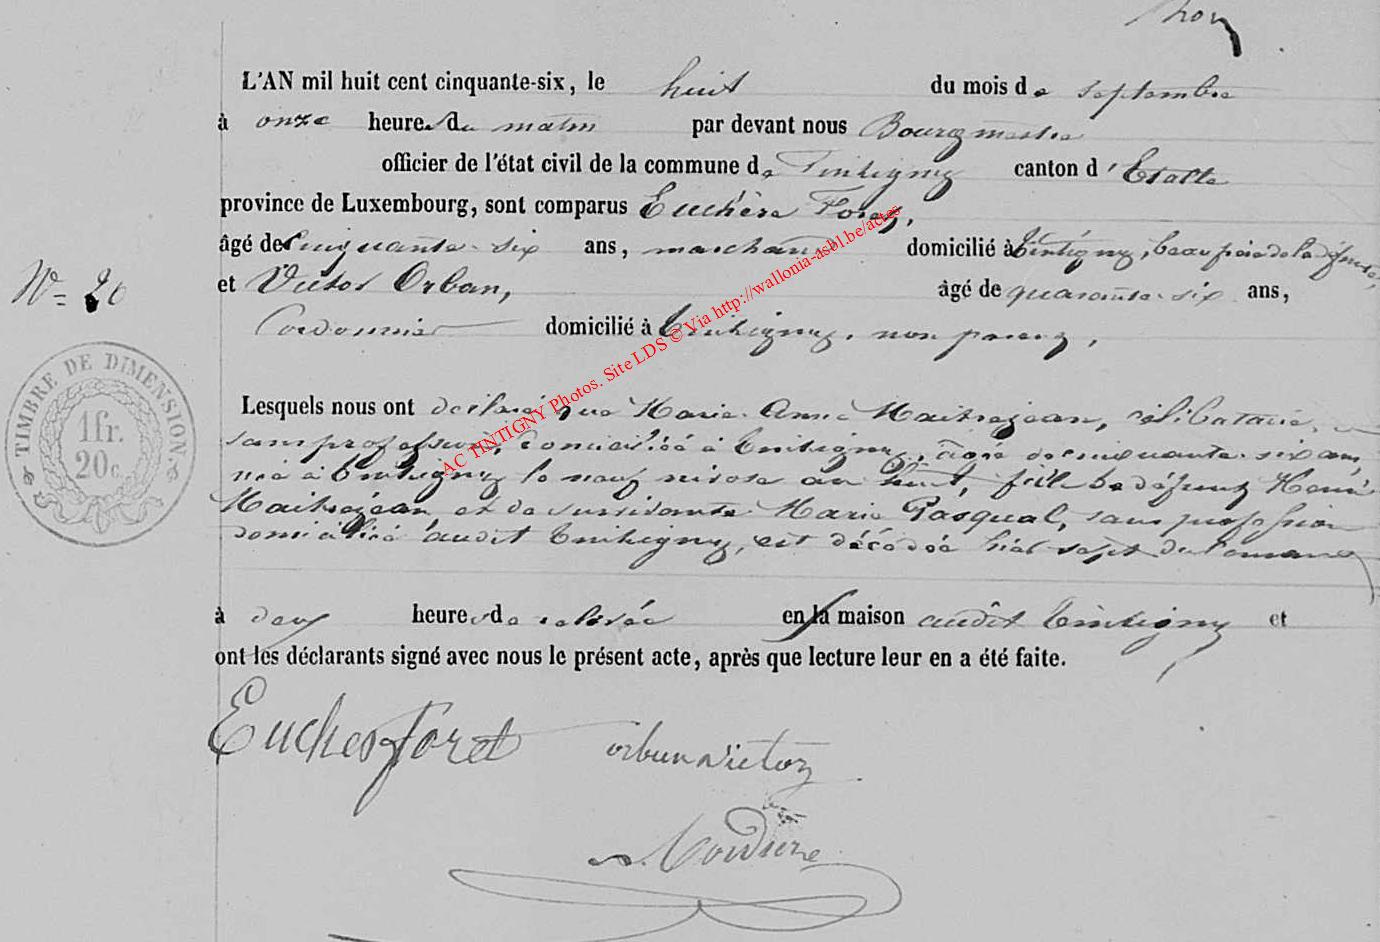 L'AN mil huit cent cinquante-six, le huit du mois de septembre
à onze heures du matin par devant nous Bourgmestre
officier de l'état civil de la commune de Tintigny canton d'Etalle
province de Luxembourg, sont comparus Euchère Foret,
âgé de cinquante-six ans, marchand domicilié à Tintigny, beau frère de la défunte,
et Victor Orban, âgé de quarante-six ans,
N° 20
Cordonnier domicilié à Tintigny, non parent,
TIMBRE DE DIMENSION
1fr.
20c.
Lesquels nous ont déclaré que Marie Anne Maitrejean, célibataire,
sans profession, domiciliée à Tintigny, âgée de cinquante-six ans,
née à Tintigny le neuf nivose an huit, fille de défunt Henri
Maitrejean et de survivante Marie Pasqual, sans profession
domiciliée audit Tintigny, est décédée hier sept du courant
à deux heures de relevée en la maison audit Tintigny et
ont les déclarants signé avec nous le présent acte, après que lecture leur en a été faite.
Eucher foret orban victor
AC TINTIGNY Photos. Site LDS © Via http://wallonia-asbl.be/actes